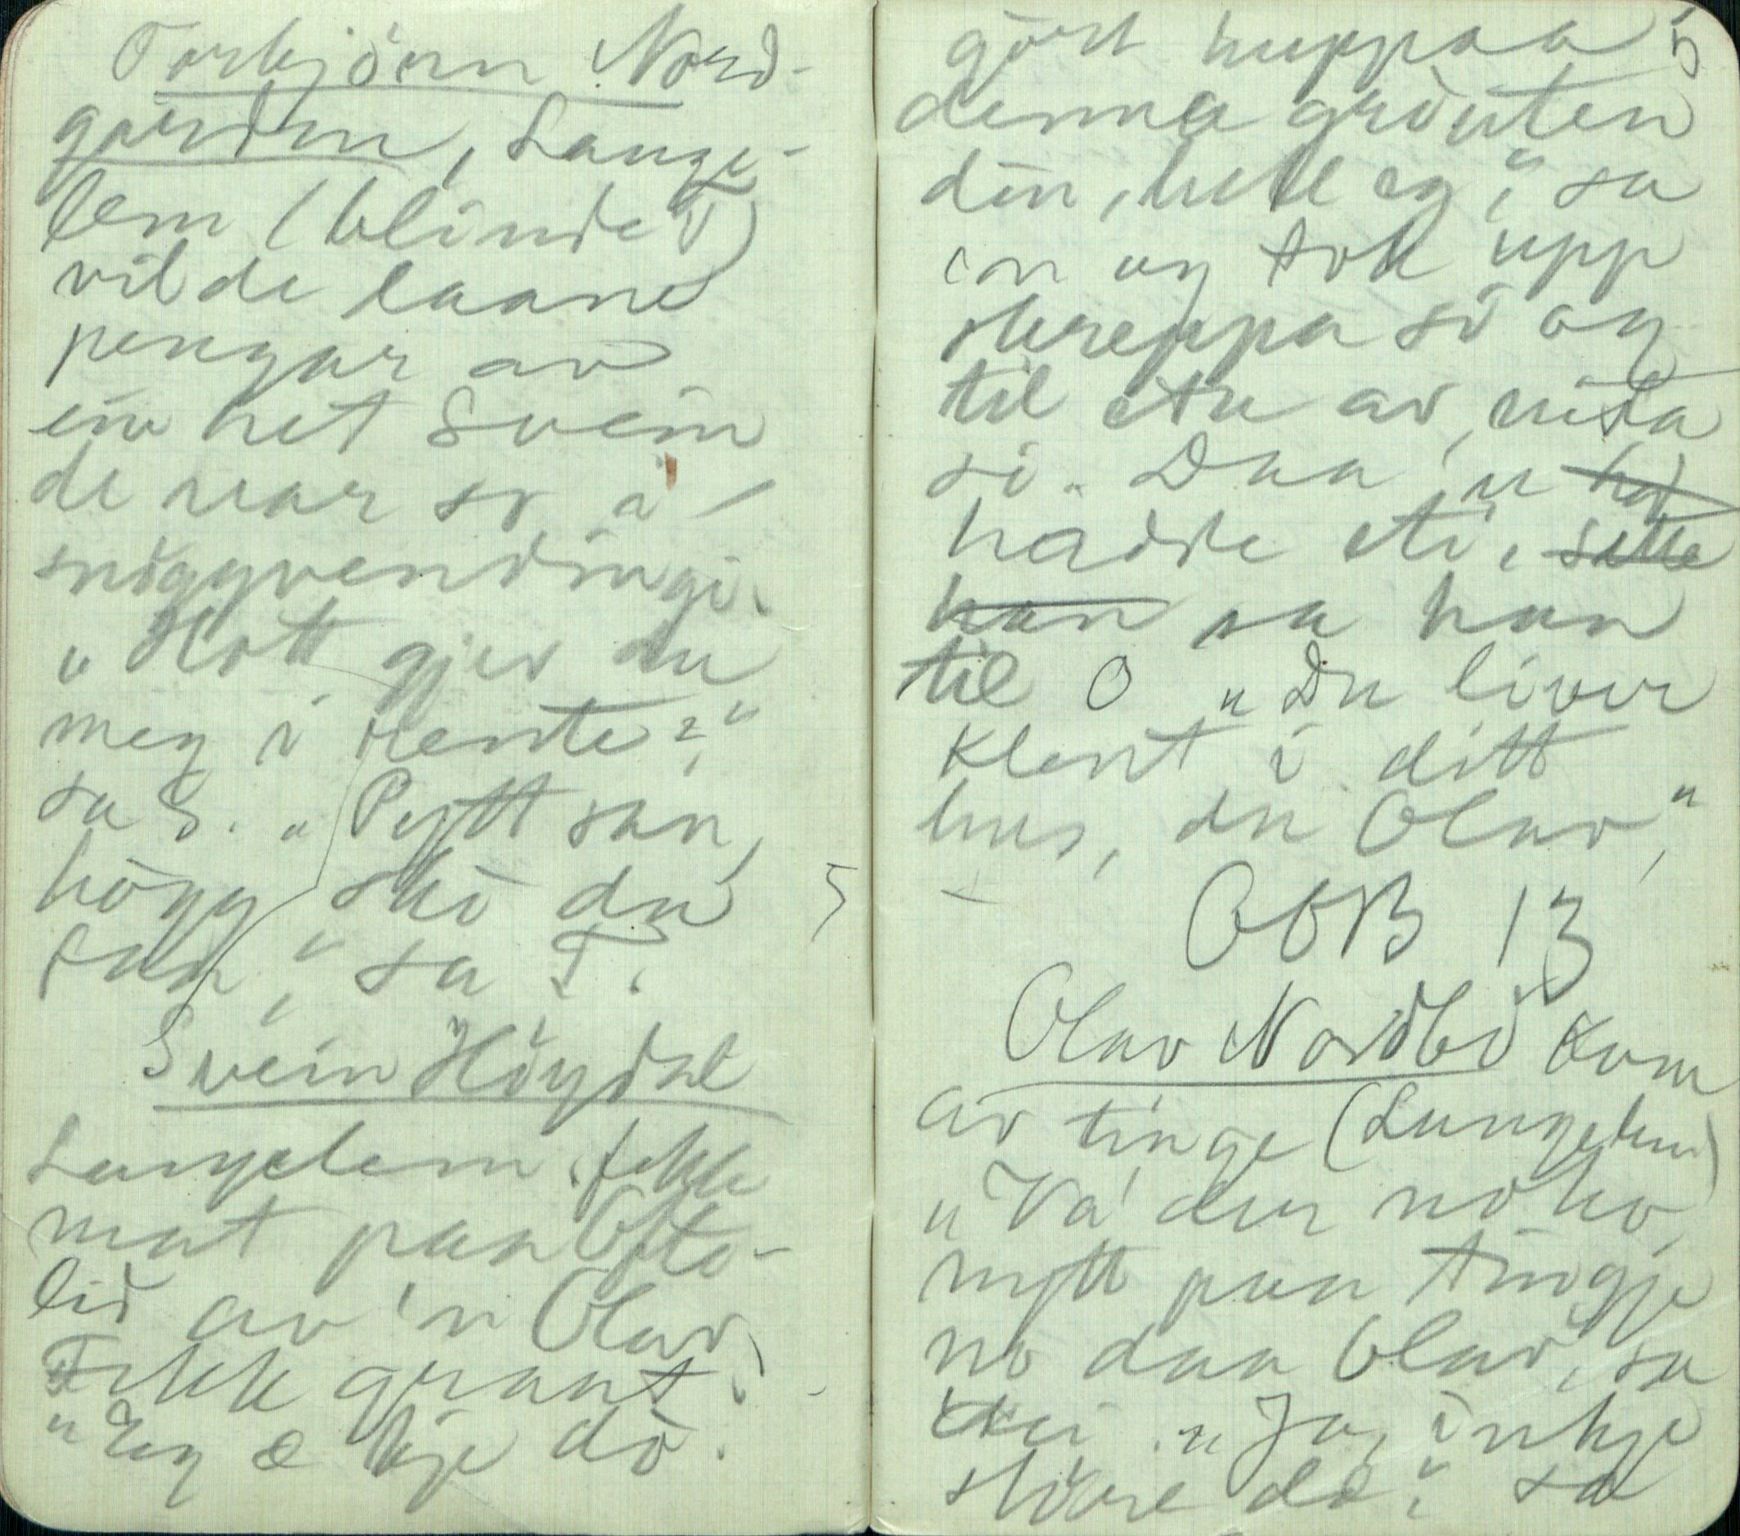 Torbjörn Nord-
garden, Lauge-
lem (blinde T)
vilde laane
pengar av
ein het Svein
de var so i
snöggvendingi.
"Hott gjev du
meg i rente?"
sa S. "Pytt san,
högg skò du
faa," sa T.
Svein Höydal
Laugelem fekk
mat paa Ofte-
lid av 'n Olav.
Fekk graut.
"Eg æ kje dò.
gòrt huppaa 5
denna gròuten
din, hell eg", sa
en og tok upp
skreppa si og
til eta av nista
si. Daa 'n
hadde eti,
sa han
til O "Du liver
klent i ditt
hus, du Olav,"
OOB 13
Olav Nordbö kom
av tinge (Laugelem)
"Va' der noko
nytt paa tingje
no daa Olav, sa
dei. "Ja, inkje
störe dæ", sa